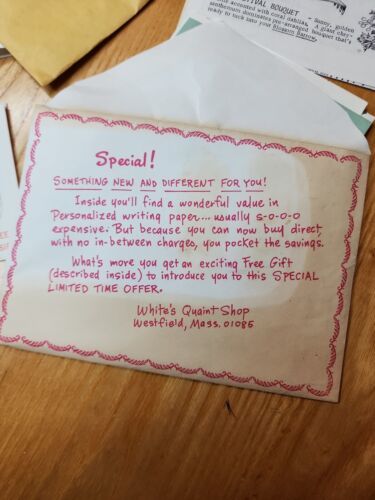 TIVAL BOUQUET - Sunny, golden
accented with coral dahlias. A giant chry-
santhemum dominates pre-arranged bouquet that's
ready to tuck into your Blossom Barrow.
Special!
SOMETHING NEW AND DIFFERENT FOR YOU!
Inside you'll find a wonderful value in
Personalized writing paper... usually s-o-o-o
expensive. But because you can now buy direct
with no in-between charges, you pocket the savings.
What's more you get an exciting Free Gift
(described inside) to introduce you to this SPECIAL
LIMITED TIME OFFER.
White's Quaint Shop
Westfield, Mass. 01085